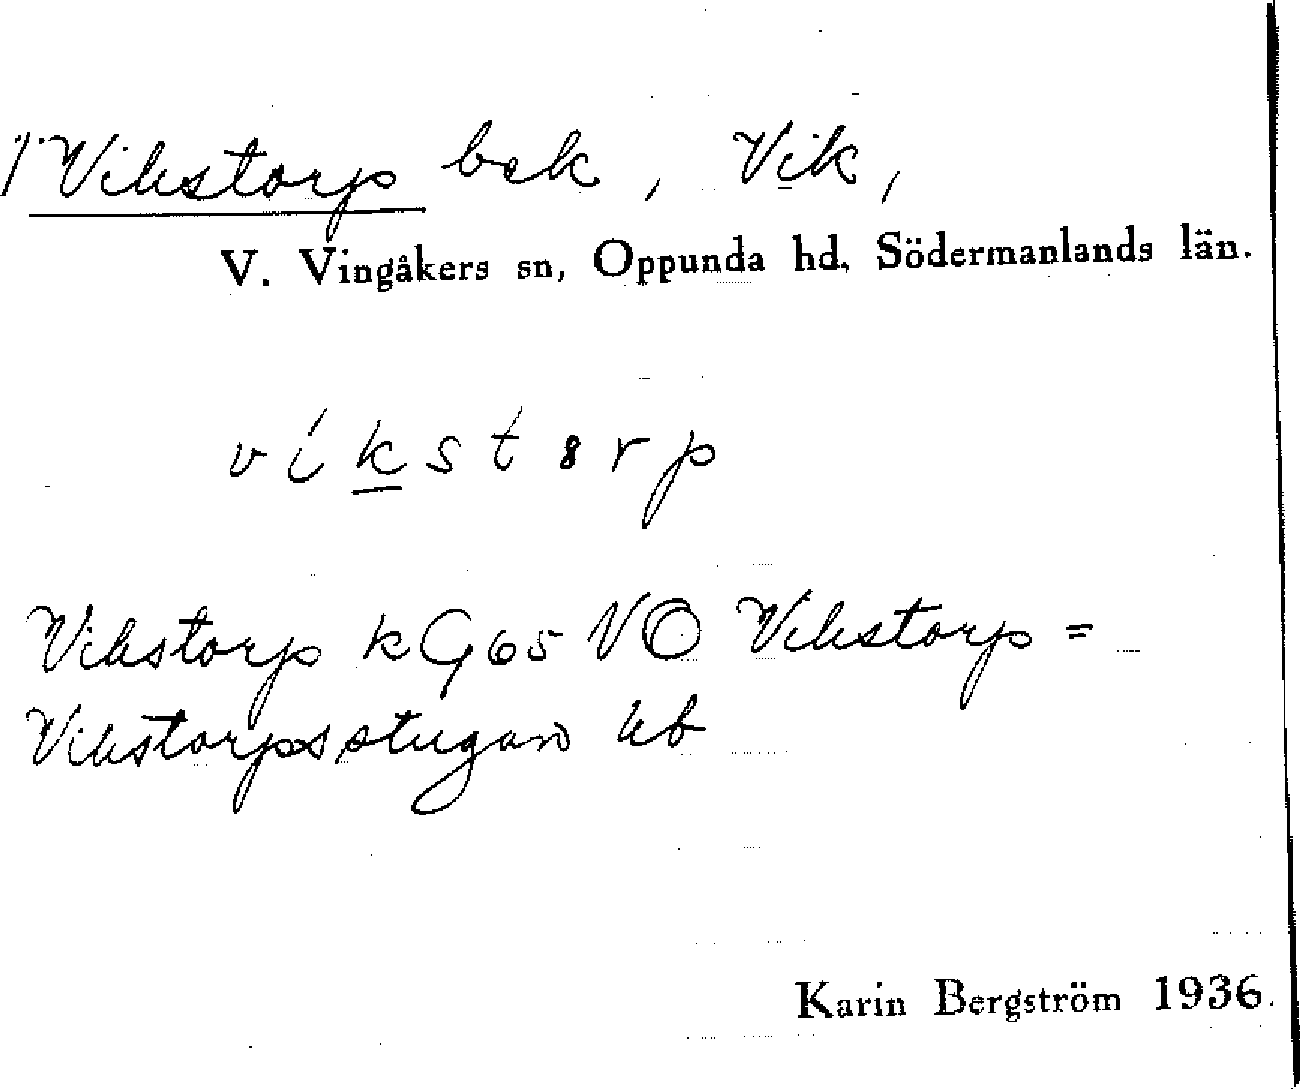 1 Vikstorp bek, Vik,
V. Vingåkers sn, Oppunda hd, Södermanlands län.
víkst8rp
Vikstorp kG65 VO Vikstorp =
Vikstorpsstugan hb
Karin Bergström 1936.